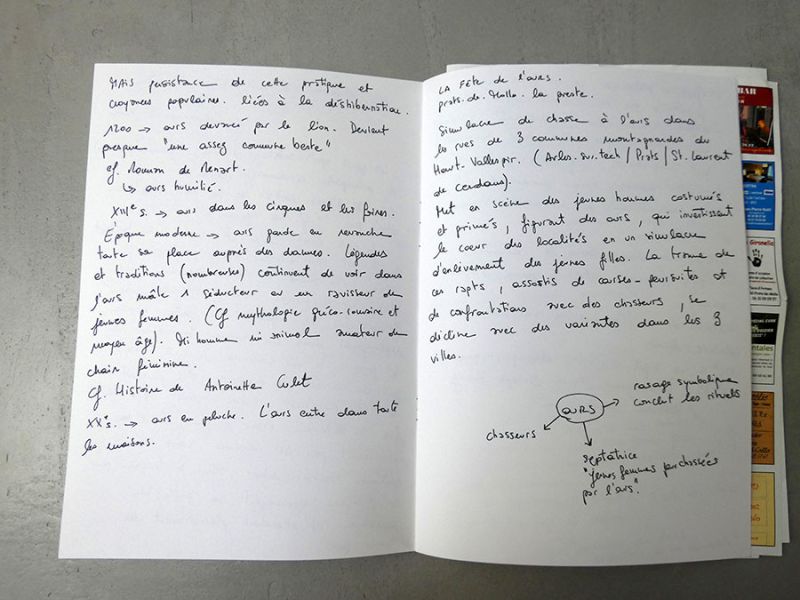 MAIS persistance de cette pratique et
croyances populaires. liées à la déshibernation.
1200 → ours devancé par le lion. Devient
presque "une assez commune beste"
cf. Roman de Renart.
↳ ours humilié.
XIIIe s. → ours dans les cirques et les foires.
Époque moderne → ours garde en revanche
toute sa place auprès des dames. Légendes
et traditions (nombreuses) continuent de voir dans
l'ours mâle 1 séducteur ou un ravisseur de
jeunes femmes. (Cf mythologie gréco-romaine et
moyen âge). Mi homme mi animal amateur de
chair féminine.
Cf. Histoire de Antoinette Culet
XXe s. → ours en peluche. L'ours entre dans toute
les maisons.
LA FÊTE DE L'OURS.
prats. de. Mollo. la preste.
Simulacre de chasse à l'ours dans
les rues de 3 communes montagnardes du
Haut-Vallespir. (Arles.sur.tech / Prats / St. Laurent
de cerdans).
Met en scène des jeunes hommes costumés
et grimés, figurant des ours, qui investissent
le coeur des localités en un simulacre
d'enlèvement des jeunes filles. La trame de
ces rapts, assortis de courses-poursuites et
de confrontations avec des chasseurs, se
décline avec des variantes dans les 3
villes.
OURS
rasage symbolique
conclut les rituels
chasseurs
"jeunes femmes pourchassées
par l'ours".
BAR